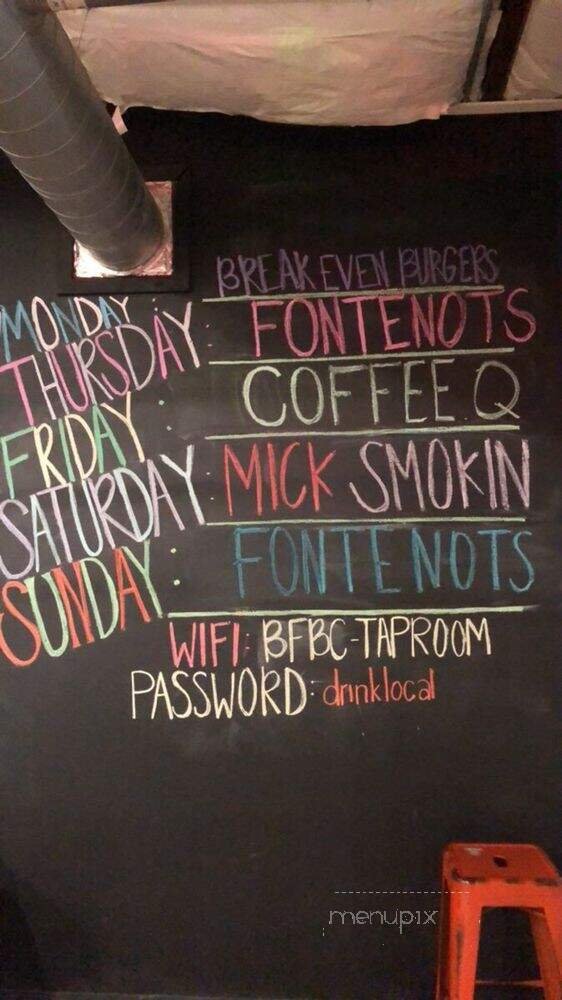 BREAK EVEN BURGERS
MONDAY :
FONTENOTS
THURSDAY :
COFFEE Q
FRIDAY :
MICK SMOKIN
SATURDAY :
FONTENOTS
SUNDAY :
WIFI: BFBC-TAPROOM
PASSWORD: drinklocal
menupix